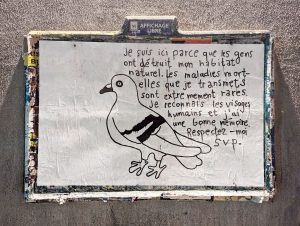 AFFICHAGE
LIBRE
Je suis ici parce que les gens
ont détruit mon habitat
naturel. Les maladies mort-
elles que je transmets
sont extremement rares.
Je reconnais les visages
humains et j'ai
une bonne mémoire.
Respectez-moi
S.V.P.